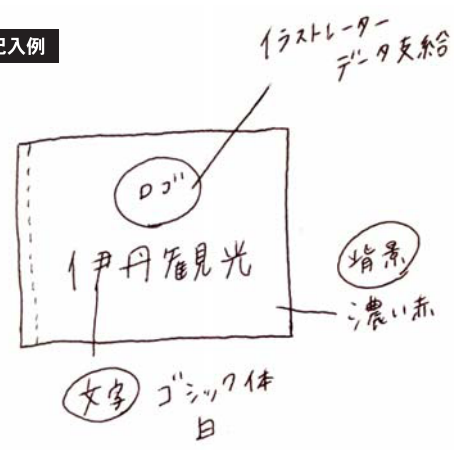 記入例
イラストレーター
データ支給
ロゴ
伊丹観光
背景
濃い赤
文字 ゴシック体
白